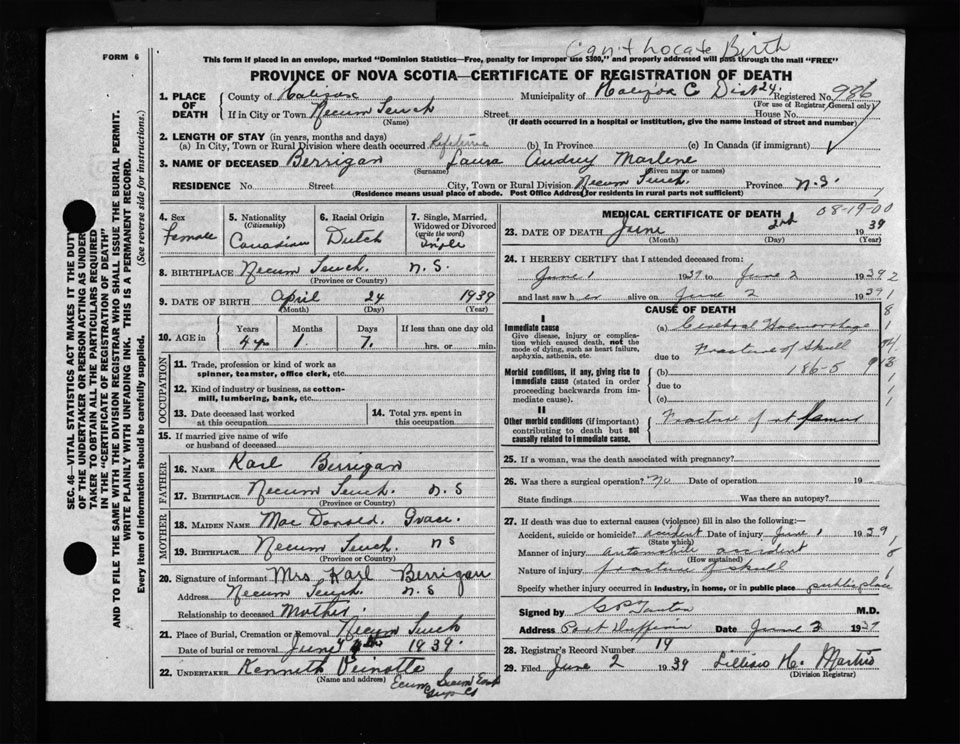 Can't Locate Birth
FORM 6
This form if placed in an envelope, marked "Dominion Statistics—Free, penalty for improper use $300," and properly addressed will pass through the mail "FREE"
PROVINCE OF NOVA SCOTIA—CERTIFICATE OF REGISTRATION OF DEATH
1. PLACE OF DEATH County of Halifax Municipality of Halifax Co Dist 24. Registered No. 986
(For use of Registrar General only)
If in City or Town Necum Teuch Street House No.
(Name) (If death occurred in a hospital or institution, give the name instead of street and number)
2. LENGTH OF STAY (in years, months and days)
(a) In City, Town or Rural Division where death occurred Lifetime (b) In Province (c) In Canada (if immigrant)
3. NAME OF DECEASED Berrigan Laura Audrey Marlene
(Surname) (Given name or names)
RESIDENCE No. Street City, Town or Rural Division Necum Teuch. Province N.S.
(Residence means usual place of abode. Post Office Address for residents in rural parts not sufficient)
4. Sex Female
5. Nationality (Citizenship) Canadian
6. Racial Origin Dutch
7. Single, Married, Widowed or Divorced (write the word) Single
8. BIRTHPLACE Necum Teuch. N.S.
(Province or Country)
9. DATE OF BIRTH April 24 1939
(Month) (Day) (Year)
10. AGE in Years Months Days If less than one day old
1 7. hrs. or min.
OCCUPATION
11. Trade, profession or kind of work as spinner, teamster, office clerk, etc.
12. Kind of industry or business, as cotton-mill, lumbering, bank, etc.
13. Date deceased last worked at this occupation
14. Total yrs. spent in this occupation
15. If married give name of wife or husband of deceased
FATHER
16. NAME Karl Berrigan
17. BIRTHPLACE Necum Teuch. N.S
(Province or Country)
MOTHER
18. MAIDEN NAME Mac Donald. Grace.
19. BIRTHPLACE Necum Teuch. N S
(Province or Country)
20. Signature of informant Mrs Karl Berrigan
Address Necum Teuch. N.S
Relationship to deceased Mother.
21. Place of Burial, Cremation or Removal Necum Teuch
Date of burial or removal June 1939.
22. UNDERTAKER Kenneth Veinotte
(Name and address) Ecum Secum East
MEDICAL CERTIFICATE OF DEATH 08-19-00
23. DATE OF DEATH June 2nd 1939
(Month) (Day) (Year)
24. I HEREBY CERTIFY that I attended deceased from:
June 1 1939 to June 2 1939
and last saw her alive on June 2 1939
CAUSE OF DEATH
I
Immediate cause
Give disease, injury or complication which caused death, not the mode of dying, such as heart failure, asphyxia, asthenia, etc.
(a) Cerebral Haemorrhage
due to Fracture of Skull
Morbid conditions, if any, giving rise to immediate cause (stated in order proceeding backwards from immediate cause).
(b) 186-5
due to
(c)
II
Other morbid conditions (if important) contributing to death but not causally related to immediate cause.
Fracture of rt femur
25. If a woman, was the death associated with pregnancy?
26. Was there a surgical operation? No Date of operation 19
State findings Was there an autopsy?
27. If death was due to external causes (violence) fill in also the following:—
Accident, suicide or homicide? accident Date of injury June 1 1939
(State which)
Manner of injury automobile accident
(How sustained)
Nature of injury fracture of skull
Specify whether injury occurred in industry, in home, or in public place public place
Signed by M.D.
Address Port Dufferin Date June 2 1939
28. Registrar's Record Number 19
29. Filed June 2 1939 Lillian H. Martin
(Division Registrar)
SEC. 46—VITAL STATISTICS ACT MAKES IT THE DUTY
OF THE UNDERTAKER OR PERSON ACTING AS UNDER-
TAKER TO OBTAIN ALL THE PARTICULARS REQUIRED
IN THE "CERTIFICATE OF REGISTRATION OF DEATH"
AND TO FILE THE SAME WITH THE DIVISION REGISTRAR WHO SHALL ISSUE THE BURIAL PERMIT.
WRITE PLAINLY WITH UNFADING INK. THIS IS A PERMANENT RECORD.
Every item of information should be carefully supplied. (See reverse side for instructions.)